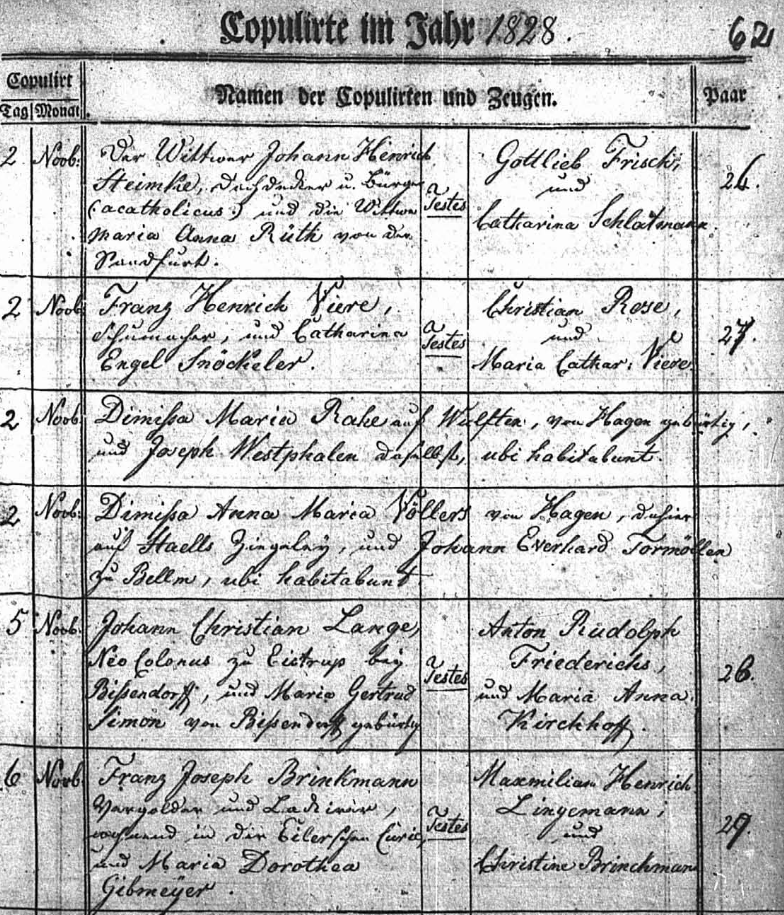 Copulirte im Jahr 1828. 62
Copulirt
Tag Monat
Namen der Copulirten und Zeugen.
Paar
2 Novb: Der Wittwer Johann Henrich
Steimke, Dachdecker u. Bürger
(:acatholicus:) und die Wittwe
Maria Anna Rüth von der
Sandfurt.
Testes
Gottlieb Frisch,
und
Catharina Schlatmann.
26.
2 Novb: Franz Henrich Viere,
Schumacher, und Catharina
Engel Snöckeler.
Testes
Christian Rose,
und
Maria Cathar: Viere.
27.
2 Novb: Dimissa Maria Rahe auf Wulften, von Hagen gebürtig,
und Joseph Westphalen daselbst, ubi habitabunt.
2 Novb: Dimissa Anna Maria Völlers von Hagen, dahier
auf Staells Ziegeley, und Johann Everhard Tormöllen
zu Bellm, ubi habitabunt
5 Novb: Johann Christian Lange,
Neo Colonus zu Eistrup bey
Bissendorff, und Maria Gertrud
Simon von Bissendorff gebürtig
Testes
Anton Rudolph
Friederichs,
und Maria Anna
Kirchhoff.
28.
6 Novb: Franz Joseph Brinkmann
Vergolder und Lackirer,
wohnend in der Eilerschen Curie,
und Maria Dorothea
Gibmeyer.
Testes
Maxmilian Henrich
Lingemann,
und
Christine Brinckmann
29.